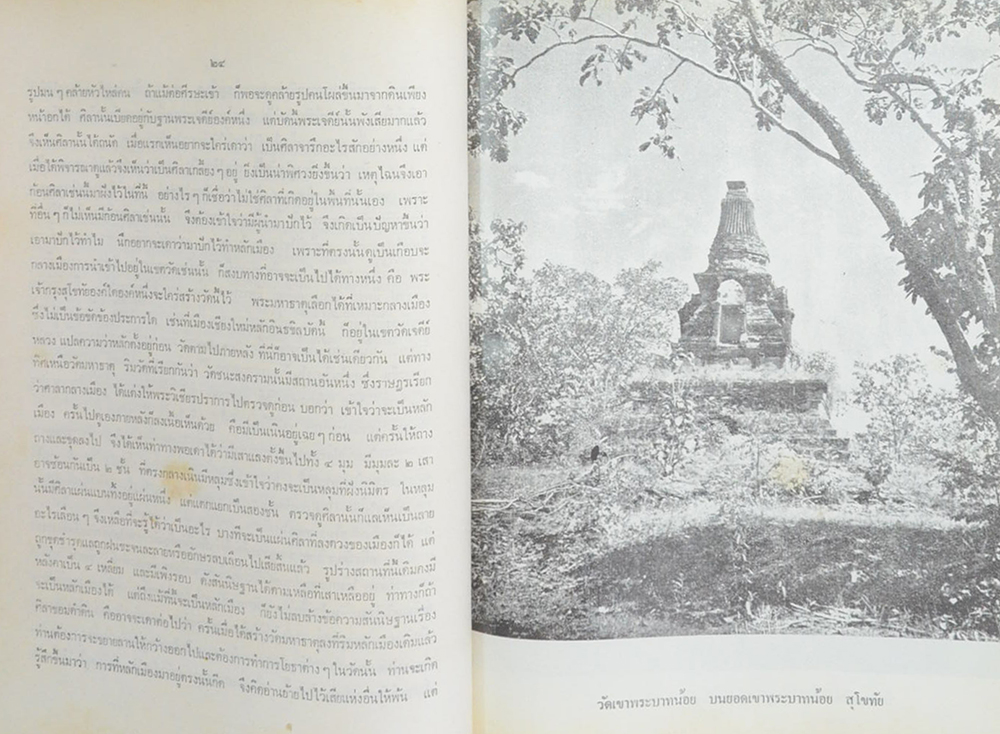 ๒๔
รูปมน ๆ คล้ายหัวไหล่คน ถ้าแม้ต่อศีรษะเข้า ก็พอจะดูคล้ายรูปคนโผล่ขึ้นมาจากดินเพียง
หน้าอกได้ ศิลานั้นเบียดอยู่กับฐานพระเจดีย์องค์หนึ่ง แต่บัดนี้พระเจดีย์นั้นพังเสียมากแล้ว
จึงเห็นศิลานั้นได้ถนัด เมื่อแรกเห็นอยากจะใคร่เดาว่า เป็นศิลาจารึกอะไรสักอย่างหนึ่ง แต่
เมื่อได้พิจารณาดูแล้วจึงเห็นว่าเป็นศิลาเกลี้ยง ๆ อยู่ ยิ่งเป็นน่าพิศวงยิ่งขึ้นว่า เหตุไฉนจึงเอา
ก้อนศิลาเช่นนี้มาฝังไว้ในที่นี้ อย่างไร ๆ ก็เชื่อว่าไม่ใช่ศิลาที่เกิดอยู่ในพื้นที่นั้นเอง เพราะ
ที่อื่น ๆ ก็ไม่เห็นมีก้อนศิลาเช่นนั้น จึงต้องเข้าใจว่ามีผู้นำมาปักไว้ จึงเกิดเป็นปัญหาขึ้นว่า
เอามาปักไว้ทำไม นึกอยากจะเดาว่ามาปักไว้ทำหลักเมือง เพราะที่ตรงนั้นดูเป็นเกือบจะ
กลางเมืองการนำเข้าไปอยู่ในเขตวัดเช่นนั้น ก็สงบทางที่อาจจะเป็นไปได้ทางหนึ่ง คือ พระ
เจ้ากรุงสุโขทัยองค์ใดองค์หนึ่งจะใคร่สร้างวัดนี้ไว้ พระมหาธาตุเลือกได้ที่เหมาะกลางเมือง
ซึ่งไม่เป็นข้อขัดข้องประการใด เช่นที่เมืองเชียงใหม่หลักอินธขิลบัดนี้ ก็อยู่ในเขตวัดเจดีย์
หลวง แปลความว่าหลักตั้งอยู่ก่อน วัดตามไปภายหลัง ที่นี่ก็อาจเป็นได้เช่นเดียวกัน แต่ทาง
ทิศเหนือวัดมหาธาตุ ริมวัดที่เรียกกันว่า วัดชนะสงครามนั้นมีสถานอันหนึ่ง ซึ่งราษฎรเรียก
ว่าศาลากลางเมือง ได้แต่งให้พระวิเชียรปราการไปตรวจดูก่อน บอกว่า เข้าใจว่าจะเป็นหลัก
เมือง ครั้นไปดูเองภายหลังก็ลงเนื้อเห็นด้วย คือมีเป็นเนินอยู่เฉย ๆ ก่อน แต่ครั้นให้ถาง
ถางและขุดลงไป จึงได้เห็นท่าทางพอเดาได้ว่ามีเสาแลงตั้งขึ้นไปทั้ง ๔ มุม มีมุมละ ๒ เสา
อาจซ้อนกันเป็น ๒ ชั้น ที่ตรงกลางเนินมีหลุมซึ่งเข้าใจว่าคงจะเป็นหลุมที่ฝังนิมิตร ในหลุม
นั้นมีศิลาแผ่นแบนตั้งอยู่แผ่นหนึ่ง แต่แตกแยกเป็นสองชั้น ตรวจดูศิลานั้นก็แลเห็นเป็นลาย
อะไรเลือน ๆ จึงเหลือที่จะรู้ได้ว่าเป็นอะไร บางทีจะเป็นแผ่นศิลาที่ลงดวงของเมืองก็ได้ แต่
ถูกขุดชำรุดแลถูกฝนชะจนละลายหรืออักษรลบเลือนไปเสียสิ้นแล้ว รูปร่างสถานที่นี้เดิมคงมี
หลังคาเป็น ๔ เหลี่ยม และมีเพิงรอบ ดังสันนิษฐานได้ตามเหลือที่เสาเหลืออยู่ ท่าทางก็ถ้า
จะเป็นหลักเมืองได้ แต่ถึงแม้ที่นี้จะเป็นหลักเมือง ก็ยังไม่ลบล้างข้อความสันนิษฐานเรื่อง
ศิลาขอมดำดิน คืออาจจะเดาต่อไปว่า ครั้นเมื่อได้สร้างวัดมหาธาตุลงที่ริมหลักเมืองเดิมแล้ว
ท่านต้องการจะขยายลานให้กว้างออกไปและต้องการทำการโยธาต่าง ๆ ในวัดนั้น ท่านจะเกิด
รู้สึกขึ้นมาว่า การที่หลักเมืองมาอยู่ตรงนั้นกีด จึงคิดอ่านย้ายไปไว้เสียแห่งอื่นให้พ้น แต่
วัดเขาพระบาทน้อย บนยอดเขาพระบาทน้อย สุโขทัย